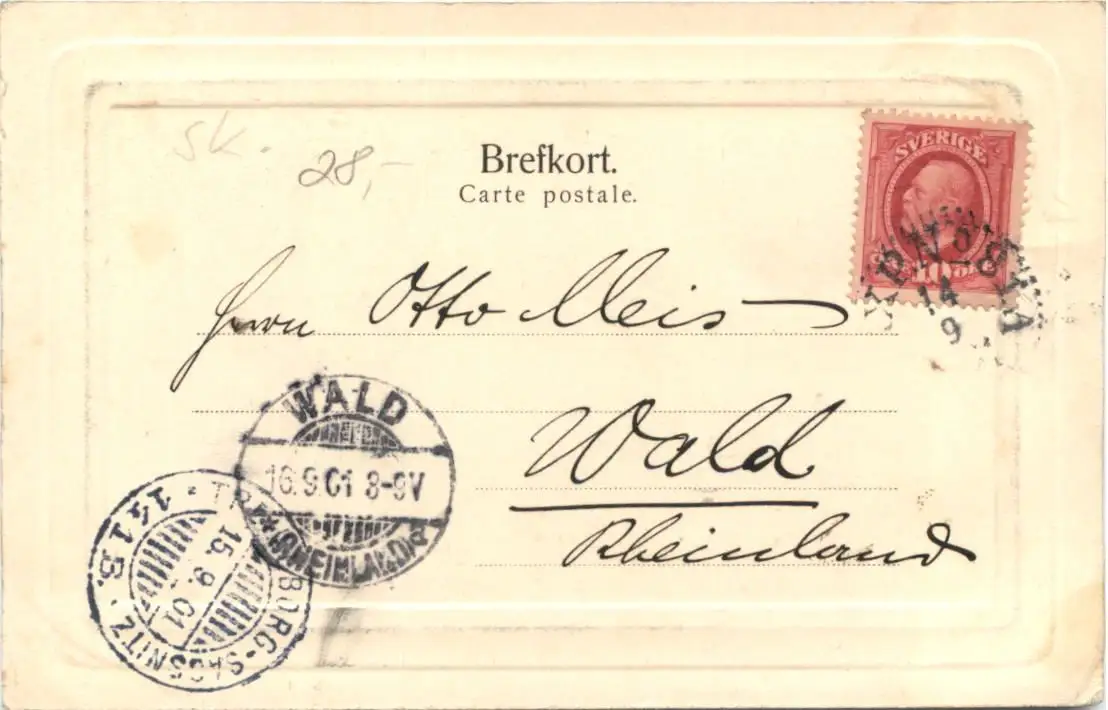 SK.
28,-
Brefkort.
Carte postale.
SVERIGE
10
Herrn Otto Meis
Wald
Rheinland
WALD
16.9.01 8-9V
(RHEINLAND)
141B. TRELLEBORG-SASSNITZ
15.9.01
14
9